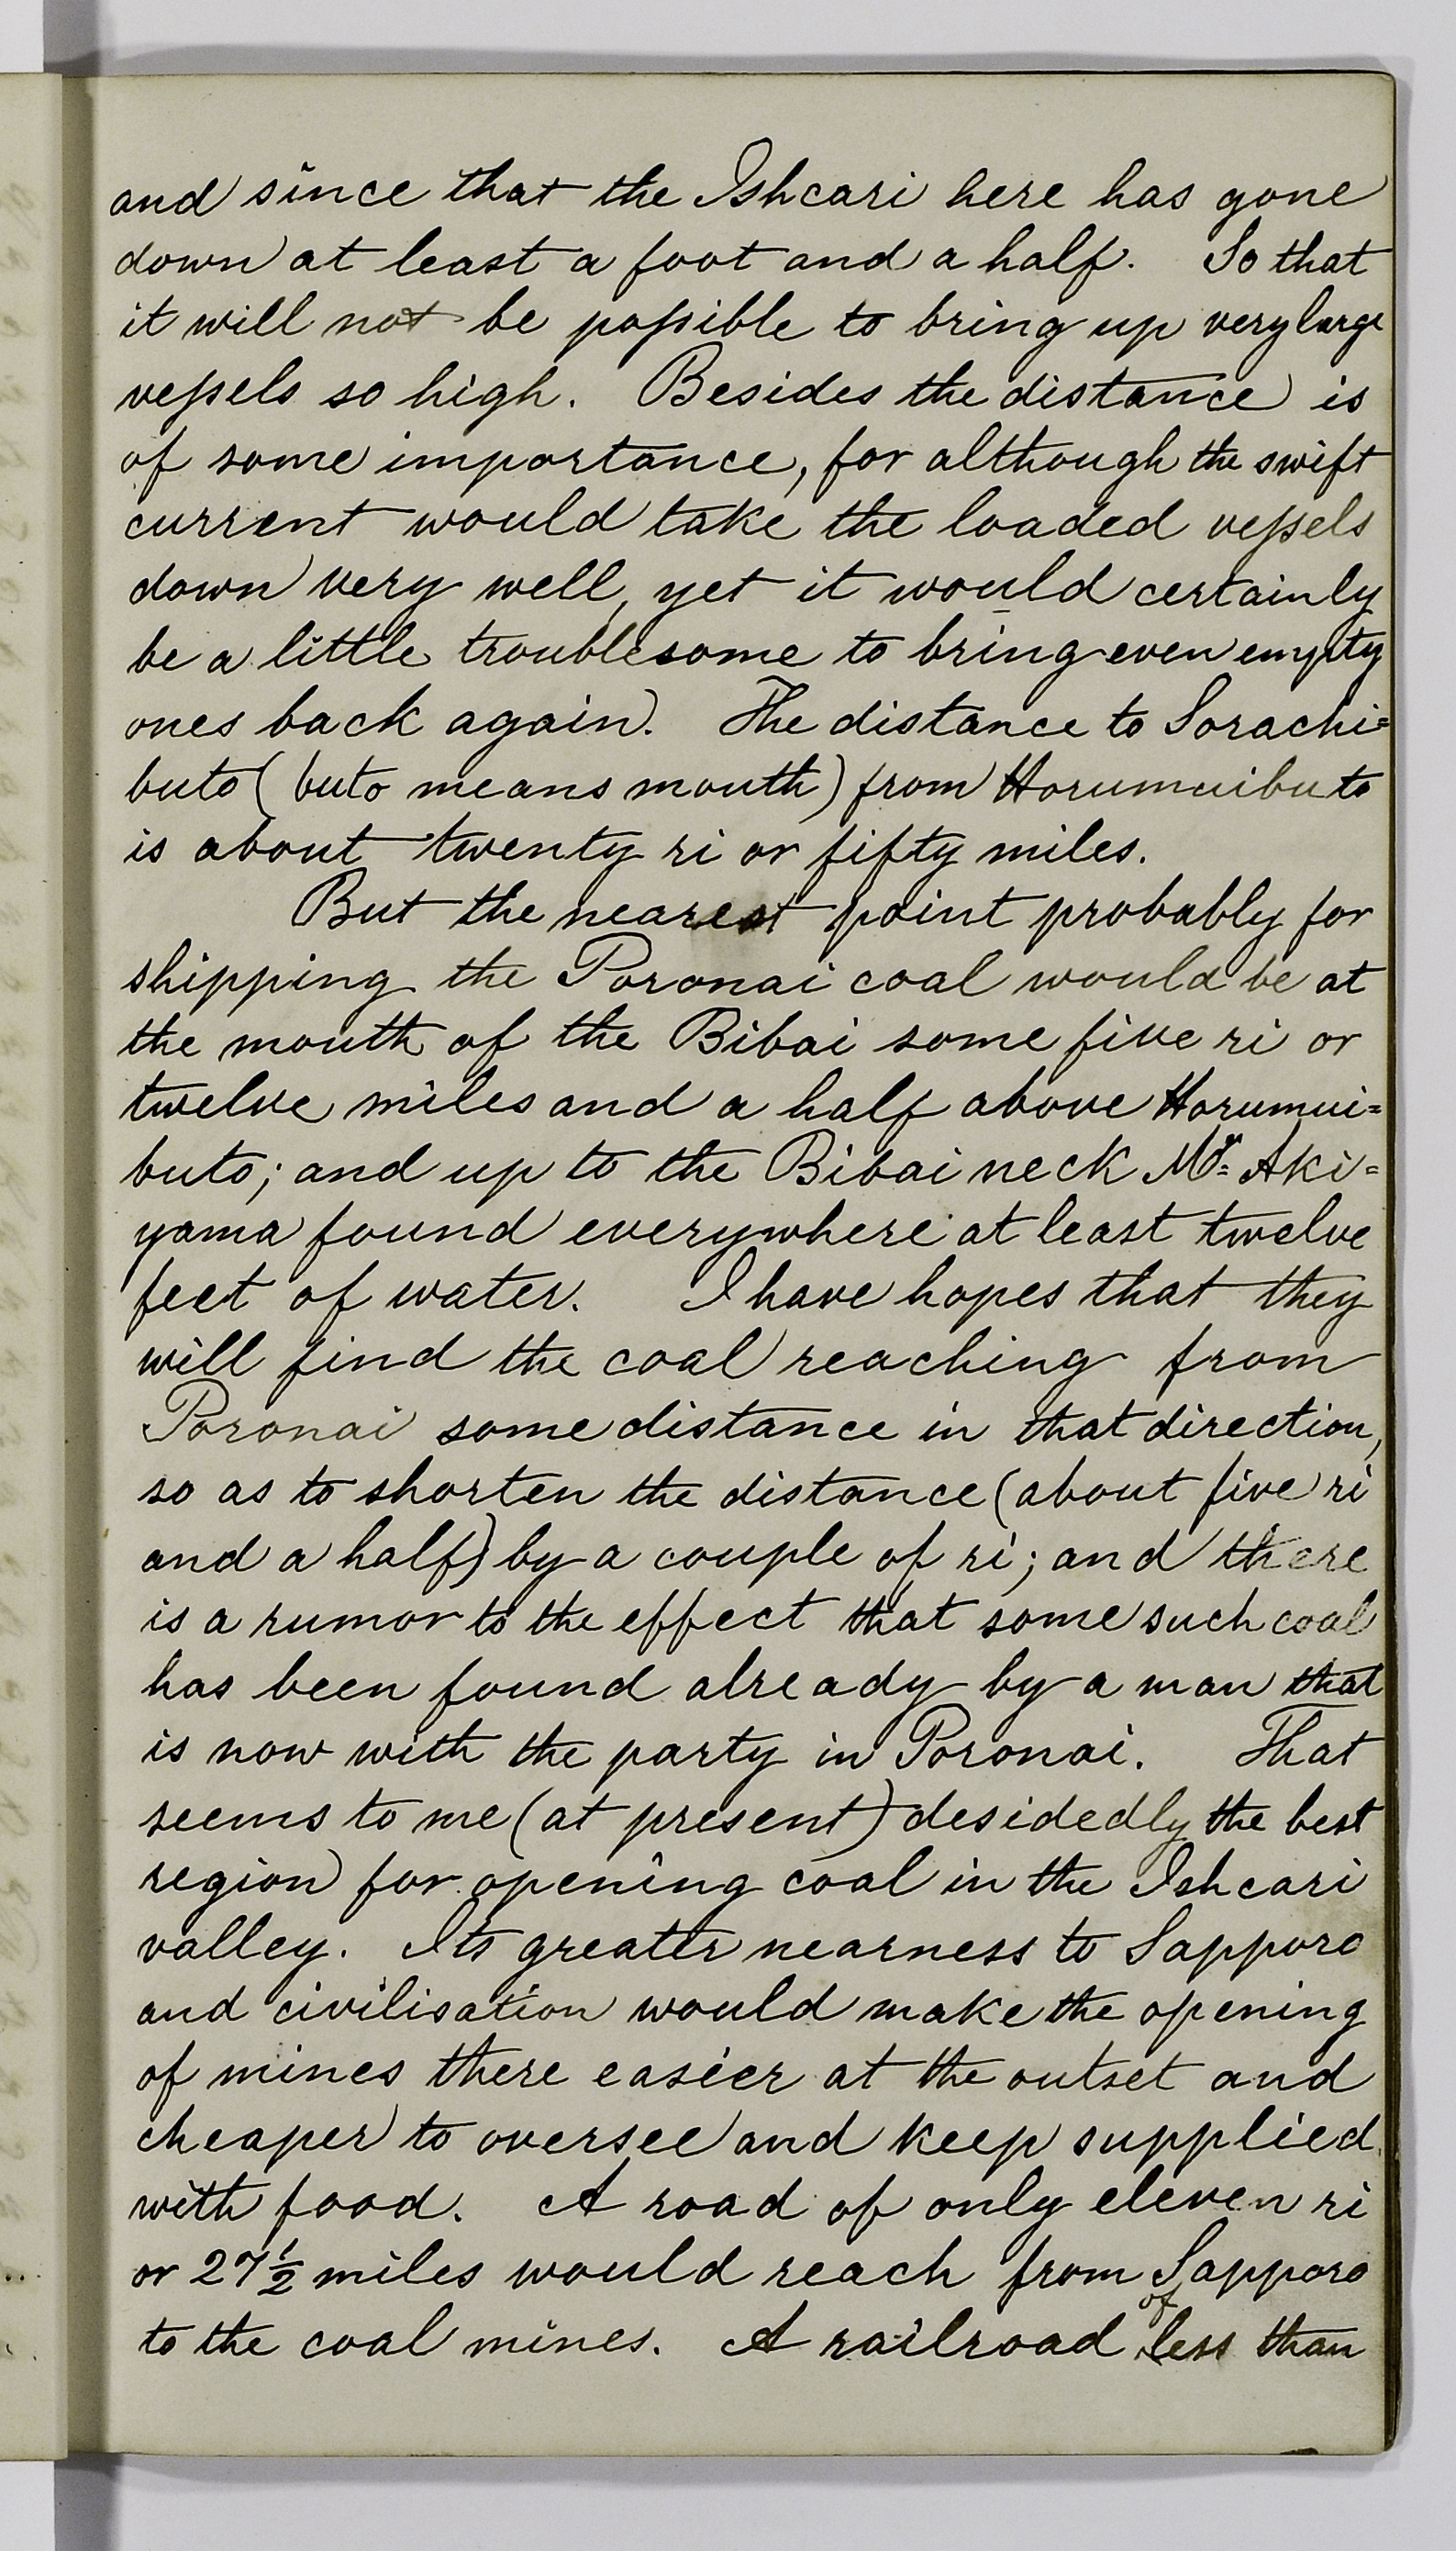 and since that the Ishcari here has gone
down at least a foot and a half. So that
it will not be possible to bring up very large
vessels so high. Besides the distance is
of some importance, for although the swift
current would take the loaded vessels
down very well, yet it would certainly
be a little troublesome to bring even empty
ones back again. The distance to Sorachi=
buto (buto means mouth) from Horumuibuto
is about twenty ri or fifty miles.
But the nearest point probably for
shipping the Poronai coal would be at
the mouth of the Bibai some five ri or
twelve miles and a half above Horumui=
buto; and up to the Bibai neck Mr. Aki=
yama found everywhere at least twelve
feet of water. I have hopes that they
will find the coal reaching from
Poronai some distance in that direction,
so as to shorten the distance (about five ri
and a half) by a couple of ri; and there
is a rumor to the effect that some such coal
has been found already by a man that
is now with the party in Poronai. That
seems to me (at present) desidedly the best
region for opening coal in the Ishcari
valley. Its greater nearness to Sapporo
and civilisation would make the opening
of mines there easier at the outset and
cheaper to oversee and keep supplied
with food. A road of only eleven ri
or 27½ miles would reach from Sapporo
to the coal mines. A railroad of less than